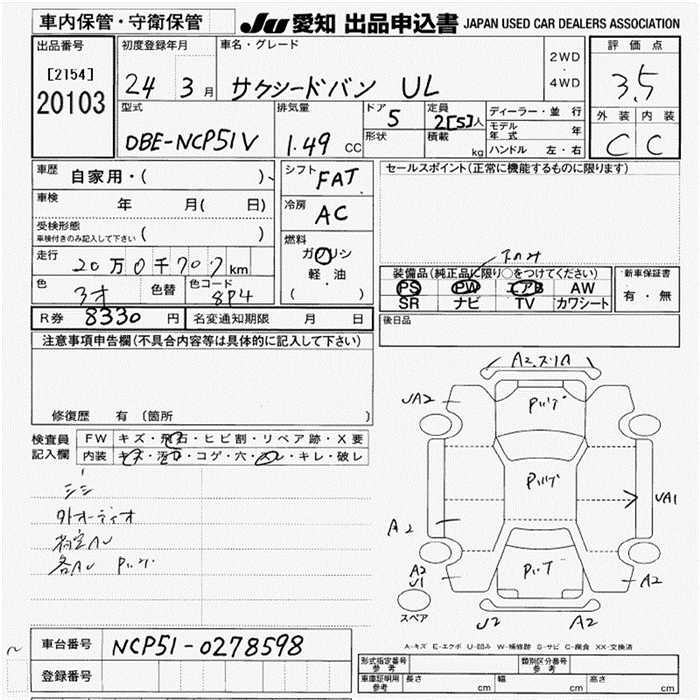 車内保管・守衛保管
JU 愛知 出品申込書 JAPAN USED CAR DEALERS ASSOCIATION
出品番号
[2154]
20103
初度登録年月
24 3月
車名・グレード
サクシードバン UL
2WD
・
4WD
評価点
3.5
外装 内装
C C
型式
DBE-NCP51V
排気量
1.49 CC
ドア
5
形状
定員
2[5]人
積載
kg
ディーラー・並行
モデル年式 年
ハンドル 左・右
車歴
自家用・( )
車検
年 月( 日)
受検形態
車検付きのみ記入して下さい ( )
走行
20万0千707km
色
色替
色コード
8P4
シフト
FAT
冷房
AC
燃料
ガソリン
軽・油
( )
セールスポイント(正常に機能するものに限ります)
装備品(純正品に限り○をつけてください)
PS PW エアB AW
SR ナビ TV カワシート
新車保証書
有・無
後日品
R券 8330円
名変通知期限 月 日
注意事項申告欄(不具合内容等は具体的に記入して下さい)
修復歴 有 (箇所 )
検査員
記入欄
FW キズ・飛石・ヒビ割・リペア跡・X要
内装 キズ・汚れ・コゲ・穴・スレ・キレ・破レ
シミ
外オーディオ
A2
UA2
UA1
A2
A2
U1
A2
U2
A2
スペア
A-キズ E-エクボ U-凹み W-補修跡 S-サビ C-腐食 XX-交換済
車台番号
NCP51-0278598
登録番号
形式指定番号
参考
類別区分番号
参考
車庫証明用
参考
長さ cm
幅 cm
高さ cm